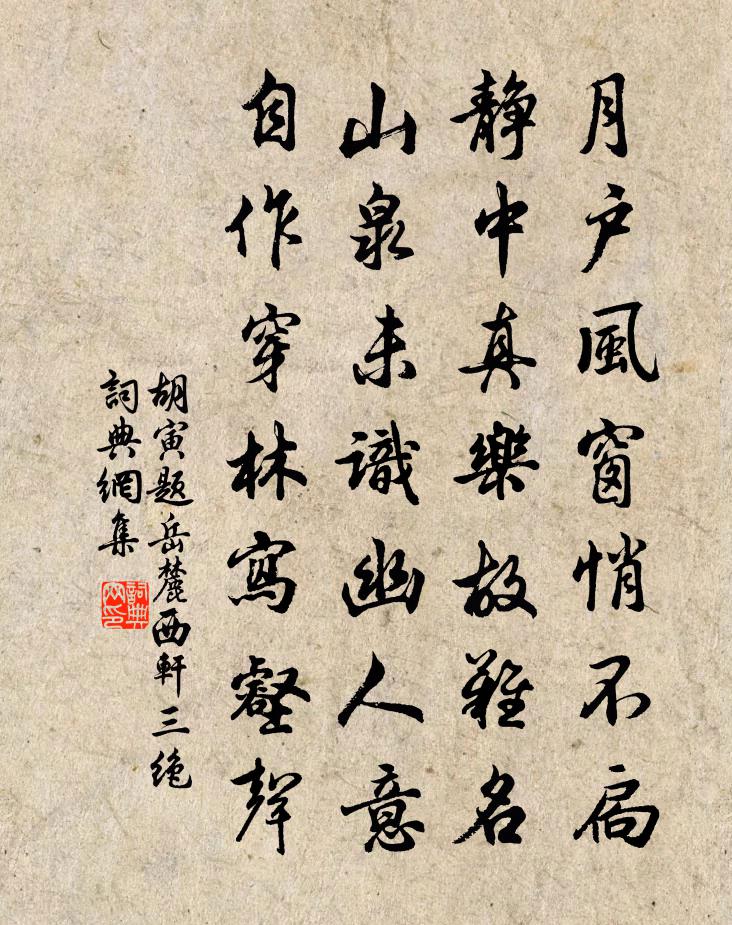 月戶風窗悄不扃
靜中真樂故難名
山泉未識幽人意
自作穿林寫壑聲
胡寅題岳麓西軒三絕
詞典網集
詞典網印